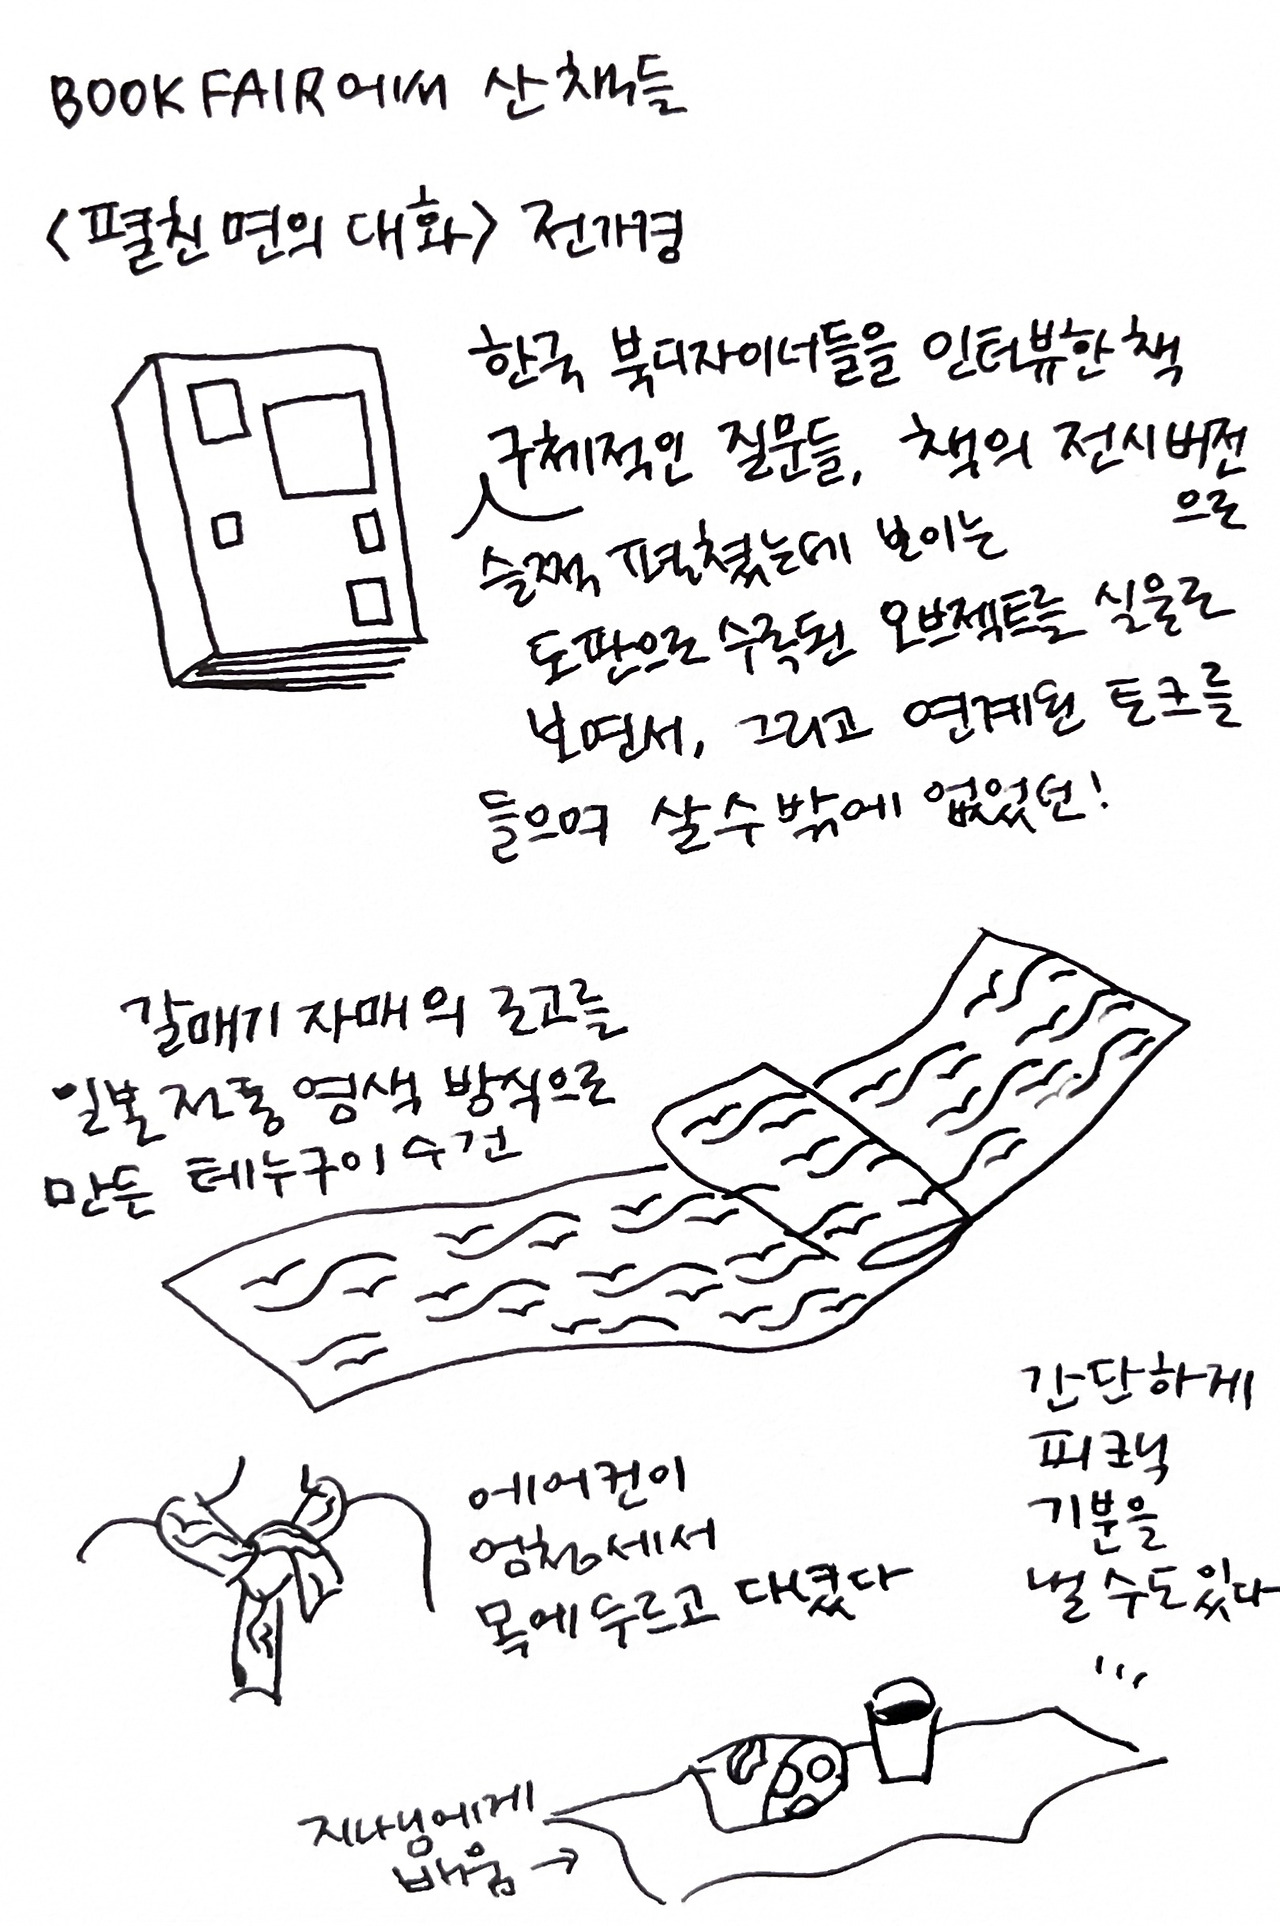 BOOK FAIR에서 산 책들
<펼친 면의 대화> 전가경
한국 북디자이너들을 인터뷰한 책
구체적인 질문들, 책의 전시버전
으로
슬쩍 펼쳤는데 보이는
도판으로 수록된 오브젝트를 실물로
보면서, 그리고 연계된 토크를
들으며 살 수밖에 없었던!
갈매기 자매의 로고를
일본 전통 염색 방식으로
만든 테누구이 수건
에어컨이
엄청 세서
목에 두르고 다녔다
간단하게
피크닉
기분을
낼 수도 있다
지나님에게
배움 →